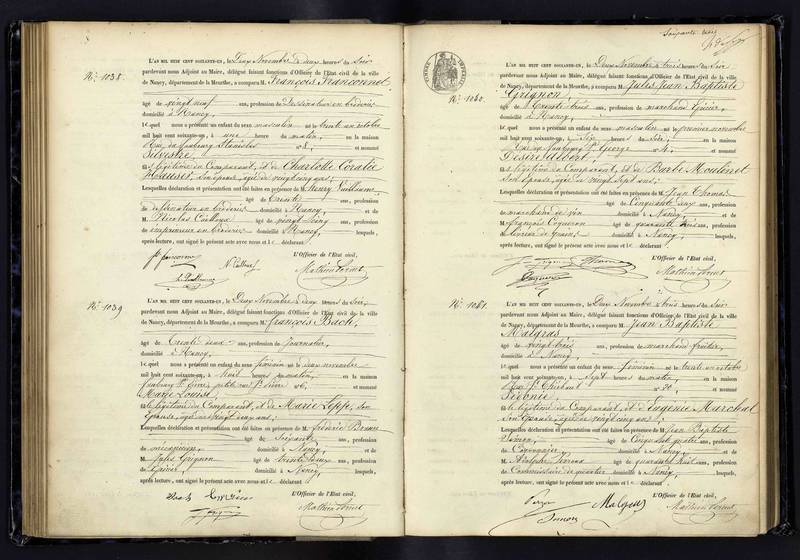 N.º 1038.
L'AN MIL HUIT CENT SOIXANTE-UN, le Deux Novembre à deux heures du Soir
pardevant nous Adjoint au Maire, délégué faisant fonctions d'Officier de l'Etat civil de la ville
de Nancy, département de la Meurthe, a comparu M. François Franconnet
âgé de vingt neuf ans, profession de Dessinateur en broderies
domicilié à Nancy,
lequel nous a présenté un enfant du sexe masculin né le trente un octobre
mil huit cent soixante-un, à une heure du matin, en la maison
Rue du faubourg Stanislas nº 8, et nommé
Silvestre
fils légitime du Comparant, et de Charlotte Coralie
son épouse, âgée de vingt cinq ans;
Lesquelles déclaration et présentation ont été faites en présence de M. Henry Vuillaume
âgé de trente ans, profession
de dessinateur en broderies domicilié à Nancy et de
M. Nicolas Cailloux âgé de vingt cinq ans, profession
d'imprimeur en broderies domicilié à Nancy, lesquels,
après lecture, ont signé le présent acte avec nous et le déclarant
L'Officier de l'Etat civil,
N.º 1039
L'AN MIL HUIT CENT SOIXANTE-UN, le Deux Novembre à deux heures du Soir,
pardevant nous Adjoint au Maire, délégué faisant fonctions d'Officier de l'Etat civil de la ville
de Nancy, département de la Meurthe, a comparu M. François Bach,
âgé de trente deux ans, profession de Journalier,
domicilié à Nancy,
lequel nous a présenté un enfant du sexe féminin né le deux novembre
mil huit cent soixante-un, à heures du matin, en la maison
faubourg St. petite rue St. nº 6, et nommé
Marie Louise
fille légitime du Comparant, et de Marie son
Epouse, âgée de vingt deux ans;
Lesquelles déclaration et présentation ont été faites en présence de M. frédéric Braun
âgé de soixante ans, profession
de mécanicien, domicilié à Nancy et de
M. Jules Grignon âgé de trente trois ans, profession
d'épicier, domicilié à Nancy, lesquels,
après lecture, ont signé le présent acte avec nous et le déclarant
L'Officier de l'Etat civil,
Soixante
TIMBRE IMPERIAL
N.º 1040.
L'AN MIL HUIT CENT SOIXANTE-UN, le Deux Novembre à trois heures du Soir
pardevant nous Adjoint au Maire, délégué faisant fonctions d'Officier de l'Etat civil de la ville
de Nancy, département de la Meurthe, a comparu M. Jules Jean Baptiste
Grignon,
âgé de trente trois ans, profession de marchand épicier,
domicilié à Nancy,
lequel nous a présenté un enfant du sexe masculin né le premier novembre
mil huit cent soixante-un, à Six heures du Soir, en la maison
Rue du faubourg St. George nº 4, et nommé
Désiré Albert,
fils légitime du Comparant, et de Barbe Moulinet
Son épouse, âgée de vingt sept ans;
Lesquelles déclaration et présentation ont été faites en présence de M. Jean Thomas
âgé de Cinquante deux ans, profession
de marchand de vin domicilié à Nancy et de
M. François Cognenon âgé de quarante ans, profession
domicilié à Nancy, lesquels,
après lecture, ont signé le présent acte avec nous et le déclarant
L'Officier de l'Etat civil,
N.º 1041.
L'AN MIL HUIT CENT SOIXANTE-UN, le Deux Novembre à trois heures du Soir
pardevant nous Adjoint au Maire, délégué faisant fonctions d'Officier de l'Etat civil de la ville
de Nancy, département de la Meurthe, a comparu M. Jean Baptiste
Malgras
âgé de vingt trois ans, profession de marchand fruitier,
domicilié à Nancy,
lequel nous a présenté un enfant du sexe féminin né le trente un octobre
mil huit cent soixante-un, à Sept heures du matin, en la maison
Rue St. Thiébaut nº 20, et nommé
Sidonie
fille légitime du Comparant, et d'Eugénie Marchal
Son Epouse, âgée de vingt cinq ans;
Lesquelles déclaration et présentation ont été faites en présence de M. Jean Baptiste
Simon, âgé de Cinquante quatre ans, profession
de Cordonnier, domicilié à Nancy et de
M. Adolphe âgé de quarante huit ans, profession
de Commissaire de quartier domicilié à Nancy, lesquels,
après lecture, ont signé le présent acte avec nous et le déclarant
L'Officier de l'Etat civil,
Malgras
Simon